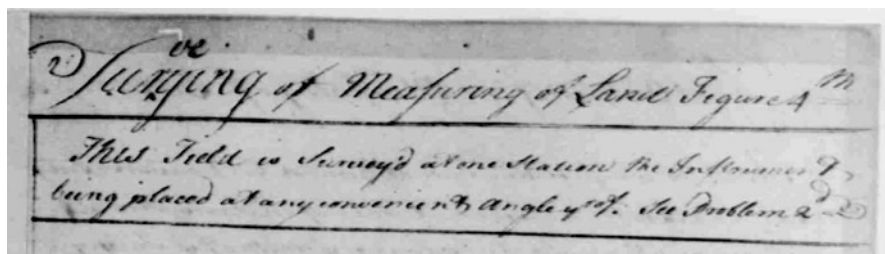 Surveying of Measuring of Land Figure 4th
This Field is Survey'd at one Station the Instrument
being placed at any convenient Angle yrof. See Problem 2d